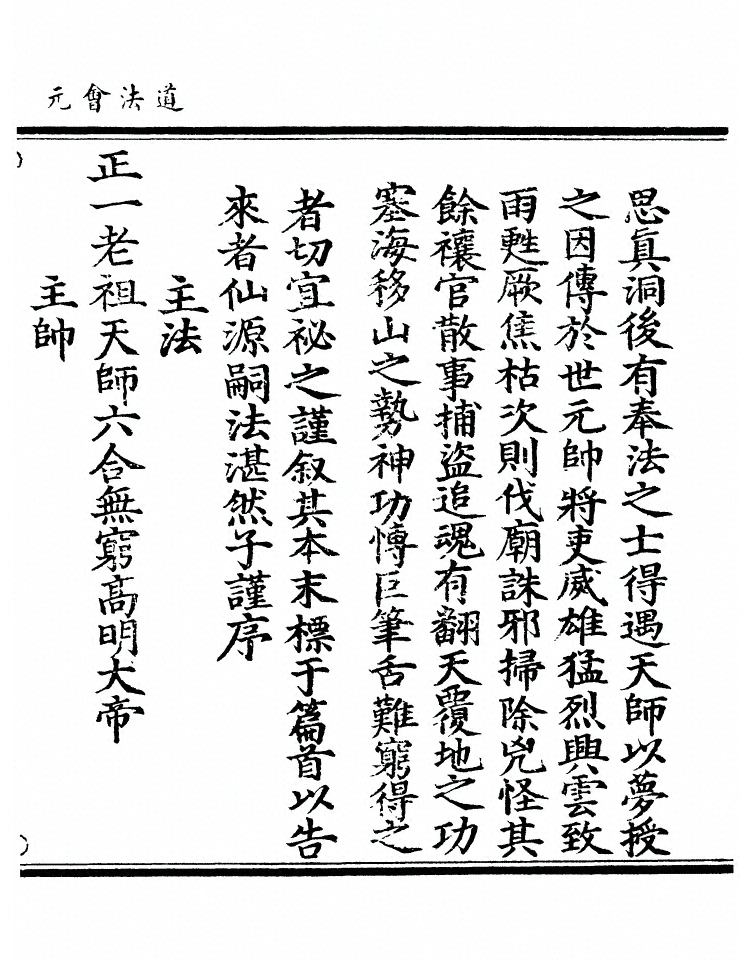 道法會元
思眞洞後有奉法之士得遇天師以夢授
之因傳於世元帥將吏威雄猛烈興雲致
雨甦厥焦枯次則伐廟誅邪掃除兇怪其
餘禳官散事捕盜追魂有翻天覆地之功
塞海移山之勢神功愽巨筆舌難窮得之
者切宜祕之謹叙其本末標于篇首以告
來者仙源嗣法湛然子謹序
主法
正一老祖天師六合無窮高明大帝
主帥